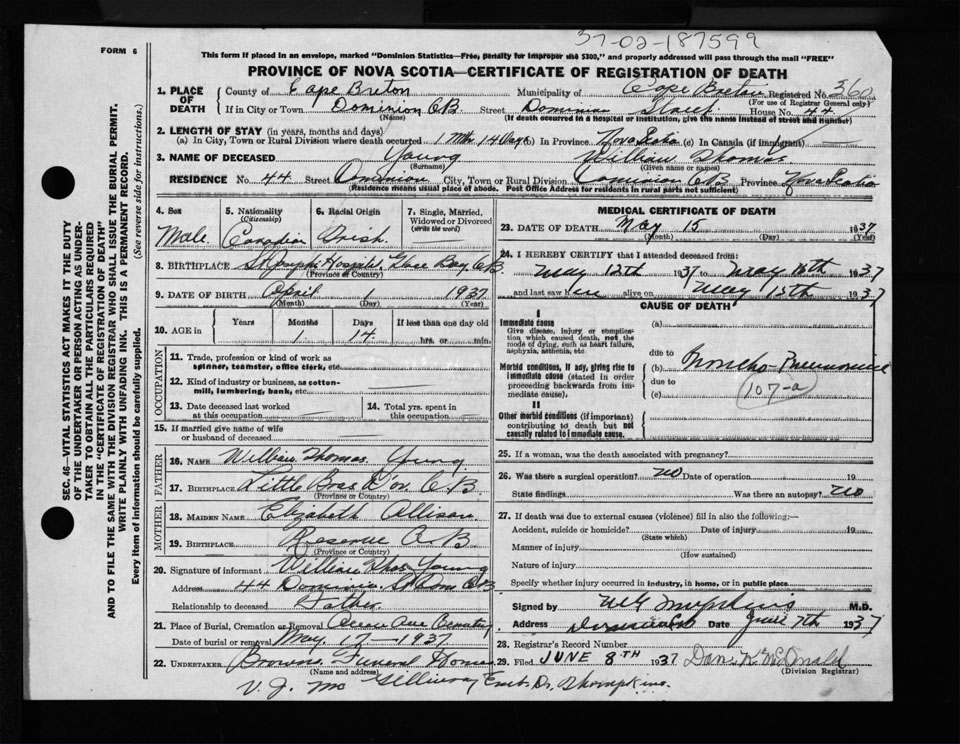 37-02-187599
FORM 6
This form if placed in an envelope, marked "Dominion Statistics—Free, penalty for improper use $300," and properly addressed will pass through the mail "FREE"
PROVINCE OF NOVA SCOTIA—CERTIFICATE OF REGISTRATION OF DEATH
1. PLACE OF DEATH County of Cape Breton Municipality of Cape Breton Registered No. 360
(For use of Registrar General only)
If in City or Town Dominion C.B. Street Dominion Street House No. 44
(Name) (If death occurred in a hospital or institution, give the name instead of street and number)
2. LENGTH OF STAY (in years, months and days)
(a) In City, Town or Rural Division where death occurred 1 Mth 14 Days (b) In Province Nova Scotia (c) In Canada (if immigrant)
3. NAME OF DECEASED Young William Thomas
(Surname) (Given name or names)
RESIDENCE No. 44 Street Dominion City, Town or Rural Division Dominion C.B. Province Nova Scotia
(Residence means usual place of abode. Post Office Address for residents in rural parts not sufficient)
4. Sex 5. Nationality (Citizenship) 6. Racial Origin 7. Single, Married, Widowed or Divorced (write the word)
Male Canadian Irish
8. BIRTHPLACE St Josephs Hospital Glace Bay C.B.
9. DATE OF BIRTH April 1 1937
(Month) (Day) (Year)
10. AGE in Years Months Days If less than one day old
1 14 hrs. or min.
OCCUPATION
11. Trade, profession or kind of work as spinner, teamster, office clerk, etc.
12. Kind of industry or business, as cotton-mill, lumbering, bank, etc.
13. Date deceased last worked at this occupation 14. Total yrs. spent in this occupation
15. If married give name of wife or husband of deceased
FATHER
16. NAME William Thomas Young
17. BIRTHPLACE Little Bras d'Or C.B.
(Province or Country)
MOTHER
18. MAIDEN NAME Elizabeth Allison
19. BIRTHPLACE Reserve C.B.
(Province or Country)
20. Signature of informant William Thos Young
Address 44 Dominion St Dom C.B
Relationship to deceased Father
21. Place of Burial, Cremation or Removal
Date of burial or removal May 17 1937
22. UNDERTAKER Browns Funeral Home
(Name and address)
V. J. Mc Gillivray Emb.
MEDICAL CERTIFICATE OF DEATH
23. DATE OF DEATH May 15 1937
(Month) (Day) (Year)
24. I HEREBY CERTIFY that I attended deceased from:
May 12th 1937 to May 15th 1937
and last saw h alive on May 15th 1937
CAUSE OF DEATH
I
Immediate cause
Give disease, injury or complication which caused death, not the mode of dying, such as heart failure, asphyxia, asthenia, etc.
(a)
due to
Morbid conditions, if any, giving rise to immediate cause (stated in order proceeding backwards from immediate cause).
(b) Broncho-Pneumonia
due to
(c) (107-a)
II
Other morbid conditions (if important) contributing to death but not causally related to immediate cause.
25. If a woman, was the death associated with pregnancy?
26. Was there a surgical operation? no Date of operation 19
State findings Was there an autopsy? no
27. If death was due to external causes (violence) fill in also the following:—
Accident, suicide or homicide? Date of injury 19
(State which)
Manner of injury
(How sustained)
Nature of injury
Specify whether injury occurred in industry, in home, or in public place
Signed by M.D.
Address Dominion C.B. Date June 7th 1937
28. Registrar's Record Number
29. Filed JUNE 8TH 1937 Dan. K. McDonald
(Division Registrar)
SEC. 46—VITAL STATISTICS ACT MAKES IT THE DUTY
OF THE UNDERTAKER OR PERSON ACTING AS UNDER-
TAKER TO OBTAIN ALL THE PARTICULARS REQUIRED
IN THE "CERTIFICATE OF REGISTRATION OF DEATH"
AND TO FILE THE SAME WITH THE DIVISION REGISTRAR WHO SHALL ISSUE THE BURIAL PERMIT.
WRITE PLAINLY WITH UNFADING INK. THIS IS A PERMANENT RECORD.
Every item of information should be carefully supplied. (See reverse side for instructions.)